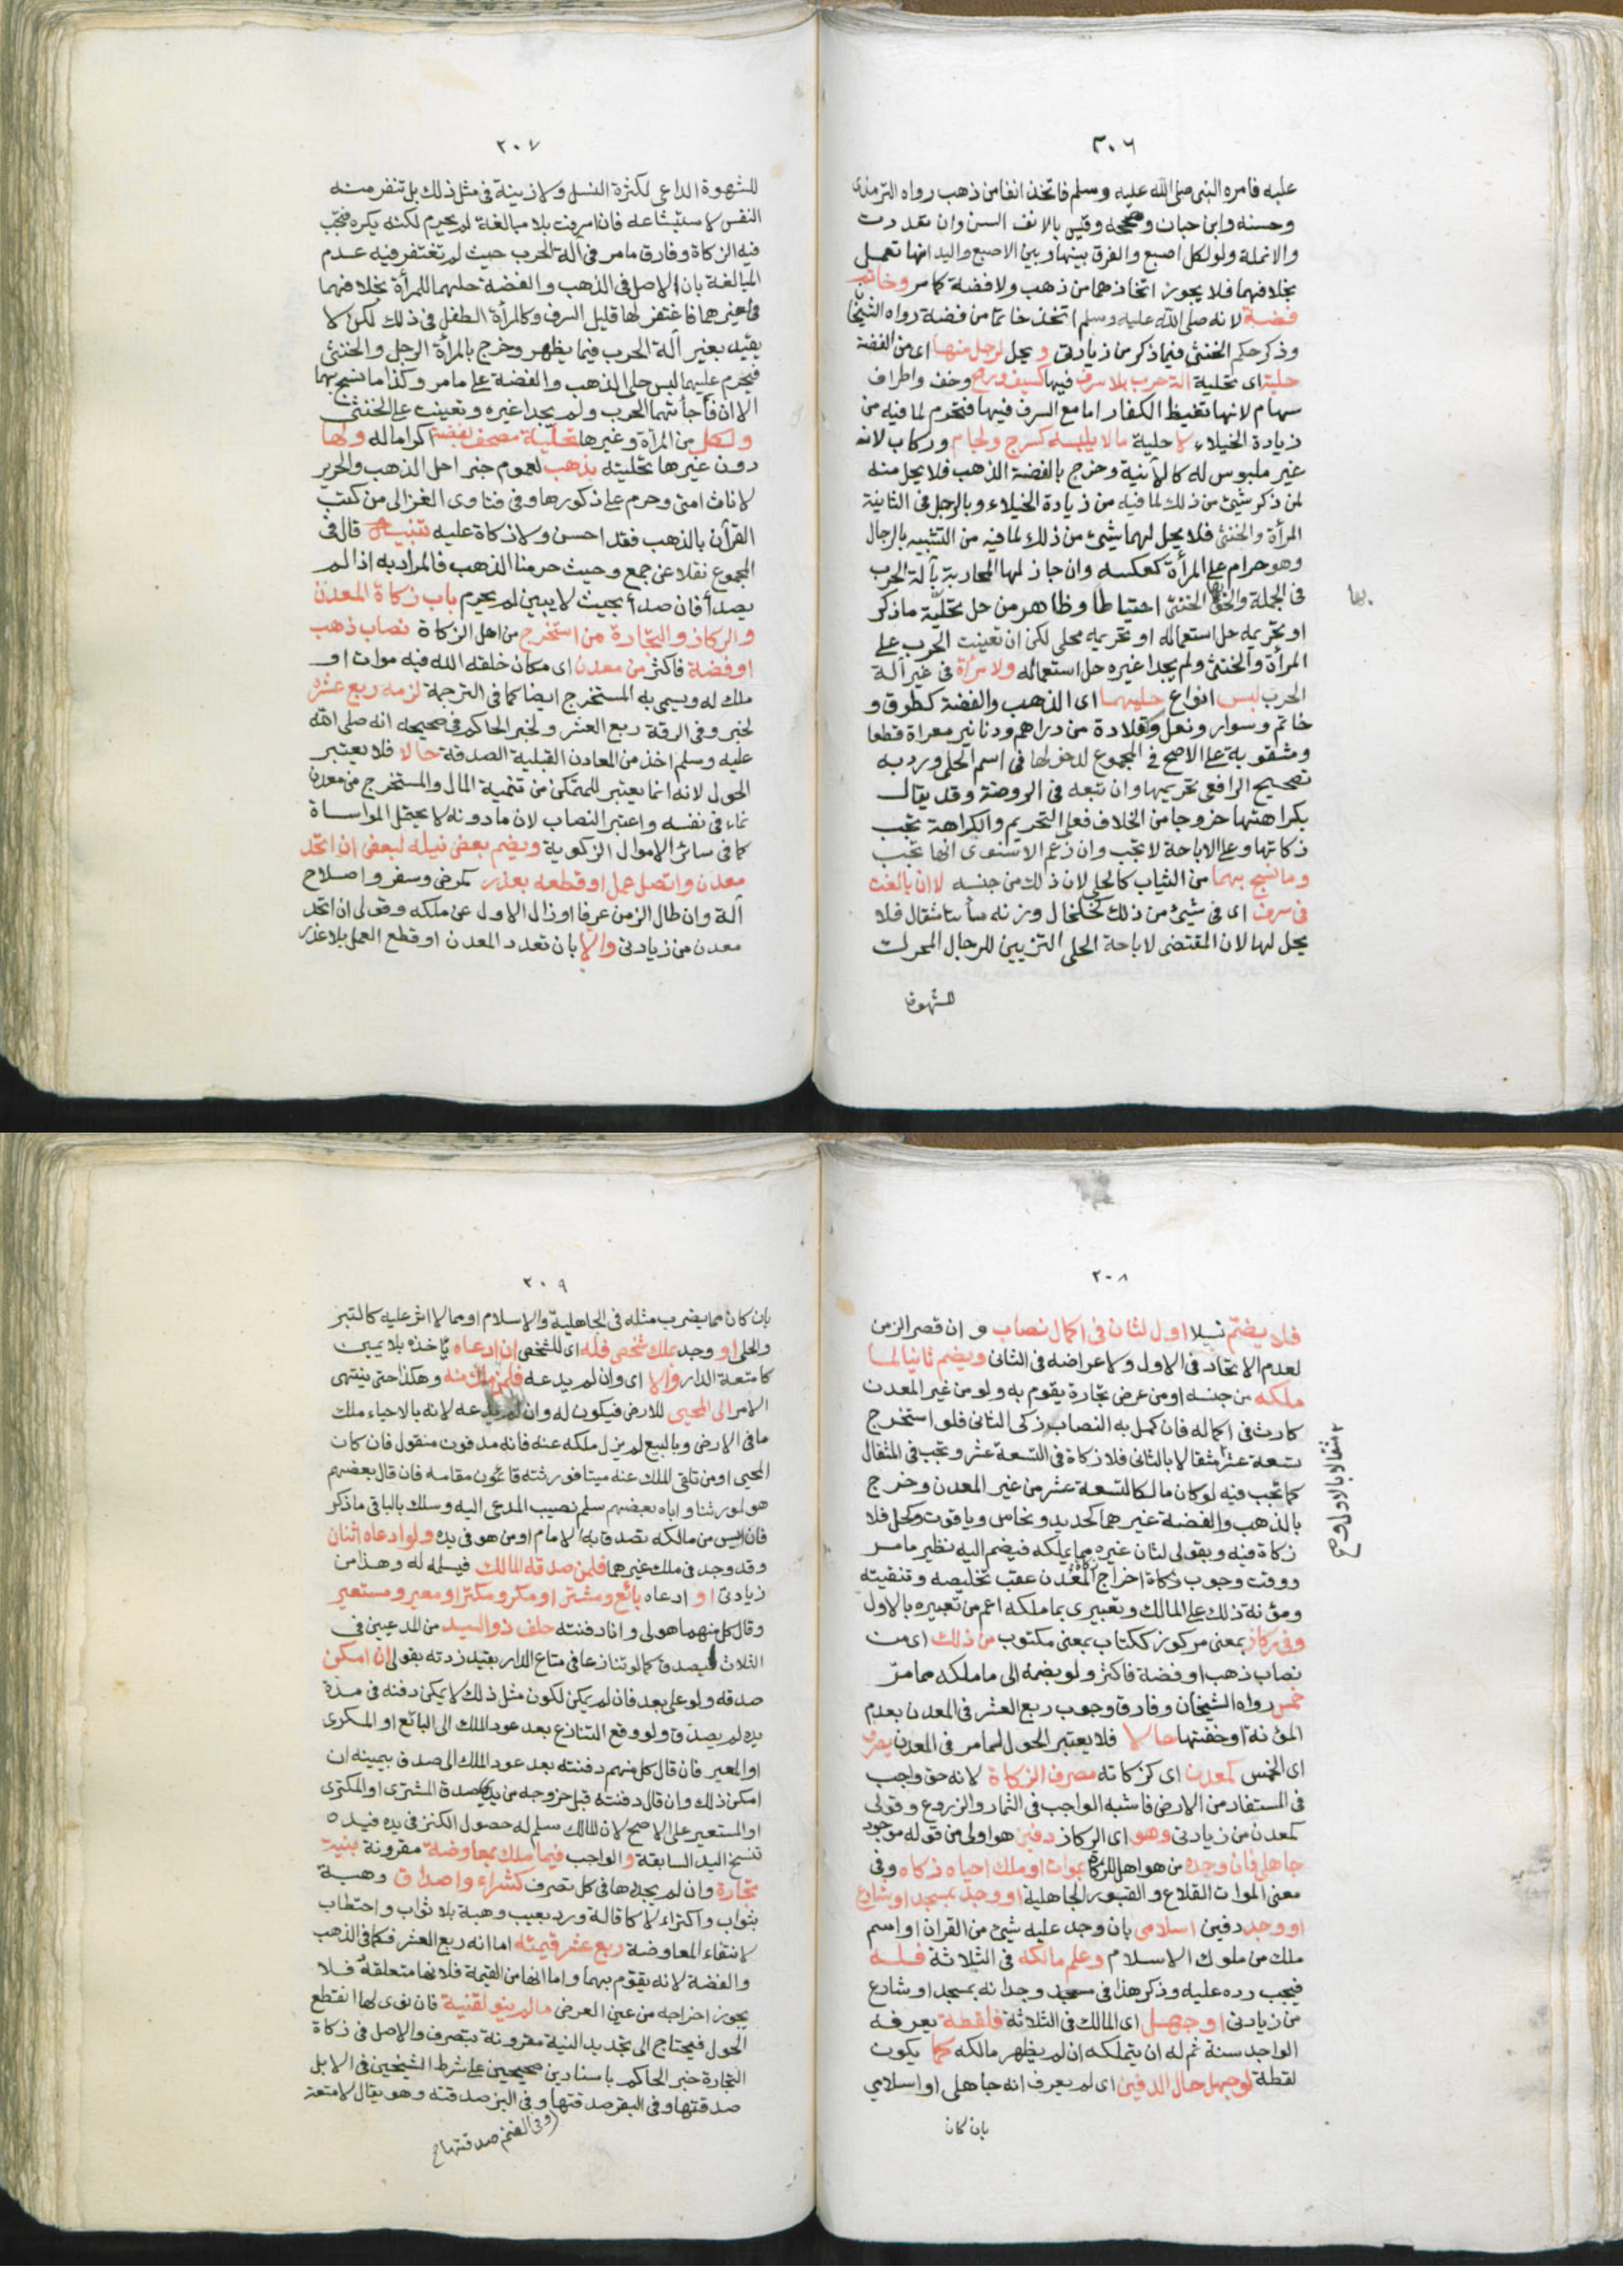 ٣٠٦
عليه فامره النبى صلى الله عليه وسلم فاتخذ انفا من ذهب رواه الترمذى
وحسنه وابن حبان وصححه وقيس بالانف السن وان تعددت
والانملة ولو لكل اصبع والفرق بينها وبين الاصبع واليد انها تعمل
بخلافهما فلا يجوز اتخاذهما من ذهب ولا فضة كما مر وخاتم
فضة لانه صلى الله عليه وسلم اتخذ خاتما من فضة رواه الشيخان
وذكر حكم الخنثى فيما ذكر من زيادتى ويحل لرجل منها اى من الفضة
حلية اى تحلية الة حرب بلا سرف فيها كسيف ورمح وخف واطراف
سهام لانها تغيظ الكفار اما مع السرف فيها فتحرم لما فيه من
زيادة الخيلاء لا حلية ما لا يلبسه كسرج ولجام وركاب لانه
غير ملبوس له كالآنية وخرج بالفضة الذهب فلا يحل منه
لمن ذكر شيئ من ذلك لما فيه من زيادة الخيلاء وبالرجل فى الثانية
المرأة والخنثى فلا يحل لهما شيئ من ذلك لما فيه من التشبيه بالرجال
وهو حرام على المرأة كعكسه وان جاز لها المحاربة بآلة الحرب
فى الجملة والحق بها الخنثى احتياطا وظاهر من حل تحلية ما ذكر
او تحريمه حل استعماله او تحريمه محلى لكن ان تعينت الحرب على
المرأة والخنثى ولم يجدا غيره حل استعماله ولامرأة فى غير آلة
الحرب لبس انواع حليهما اى الذهب والفضة كطوق و
خاتم وسوار ونعل وكقلادة من دراهم ودنانير معراة قطعا
ومثقوبة على الاصح فى المجموع لدخولها فى اسم الحلى ورد به
تصحيح الرافعى تحريمها وان تبعه فى الروضة وقد يقال
بكراهتها خروجا من الخلاف فعلى التحريم والكراهة تجب
زكاتها وعلى الاباحة لا تجب وان زعم الاسنوى انها تجب
وما نسج بهما من الثياب كالحلى لان ذلك من جنسه لا ان بالغت
فى سرف اى فى شيئ من ذلك كخلخال وزنه مأتا مثقال فلا
يحل لها لان المقتضى لاباحة الحلى التزيين للرجال المحرك
للشهوة
بها
٢٠٧
للشهوة الداعى لكثرة النسل ولا زينة فى مثل ذلك بل تنفر منه
النفس لاستبشاعه فان اسرفت بلا مبالغة لم يحرم لكنه يكره فتجب
فيه الزكاة وفارق ما مر فى الة الحرب حيث لم تغتفر فيه عدم
المبالغة بان الاصل فى الذهب والفضة حلهما للمرأة بخلافهما
فى غيرهما فاغتفر لها قليل السرف وكالمرأة الطفل فى ذلك لكن لا
يقيد بغير آلة الحرب فيما يظهر وخرج بالمرأة الرجل والخنثى
فيحرم عليهما لبس حلى الذهب والفضة على ما مر وكذا ما نسج بهما
الا ان فاجأتهما الحرب ولم يجدا غيره وتعينت على الخنثى
ولكل من المرأة وغيرها تحلية مصحف بفضة اكراما له ولها
دون غيرها تحليته بذهب لعموم خبر احل الذهب والحرير
لاناث امتى وحرم على ذكورها وفى فتاوى الغزالى من كتب
القرآن بالذهب فقد احسن ولا زكاة عليه تنبيه قال فى
المجموع نقلا عن جمع وحيث حرمنا الذهب فالمراد به اذا لم
يصدأ فان صدأ بحيث لا يبين لم يحرم باب زكاة المعدن
والركاز والتجارة من استخرج من اهل الزكاة نصاب ذهب
او فضة فاكثر من معدن اى مكان خلقه الله فيه موات او
ملك له ويسمى به المستخرج ايضا كما فى الترجمة لزمه ربع عشره
لخبر وفى الرقة ربع العشر ولخبر الحاكم فى صحيحه انه صلى الله
عليه وسلم اخذ من المعادن القبلية الصدقة حالا فلا يعتبر
الحول لانه انما يعتبر للتمكن من تنمية المال والمستخرج من معدن
نماء فى نفسه واعتبر النصاب لان ما دونه لا يحتمل المواساة
كما فى سائر الاموال الزكوية ويضم بعض نيله لبعض ان اتحد
معدن واتصل عمل او قطعه بعذر كمرض وسفر واصلاح
آلة وان طال الزمن عرفا او زال الاول عن ملكه وقولى ان اتحد
معدن من زيادتى والا بان تعدد المعدن او قطع العمل بلا عذر
٢٠٨
فلا يضم نيلا اول لثان فى اكمال نصاب وان قصر الزمن
لعدم الاتحاد فى الاول ولاعراضه فى الثانى ويضم ثانيا لما
ملكه من جنسه او من عرض تجارة يقوم به ولو من غير المعدن
كارث فى اكماله فان كمل به النصاب زكى الثانى فلو استخرج
تسعة عشر مثقالا بالثانى فلا زكاة فى التسعة عشر وتجب فى المثقال
كما تجب فيه لو كان مالكا لتسعة عشر من غير المعدن وخرج
بالذهب والفضة غيرهما كحديد ونحاس وياقوت وكحل فلا
زكاة فيه وبقولى لثان غيره مما يملكه فيضم اليه نظير ما مر
ووقت وجوب زكاة اخراج المعدن عقب تخليصه وتنقيته
ومؤنة ذلك على المالك وتعبيرى بما ملكه اعم من تعبيره بالاول
وفى ركاز بمعنى مركوز ككتاب بمعنى مكتوب من ذلك اى من
نصاب ذهب او فضة فاكثر ولو بضمه الى ما ملكه مما مر
خمس رواه الشيخان وفارق وجوب ربع العشر فى المعدن بعدم
المؤنة او خفتها حالا فلا يعتبر الحول لما مر فى المعدن يصرف
اى الخمس كمعدن اى كزكاته مصرف الزكاة لانه حق واجب
فى المستفاد من الارض فاشبه الواجب فى الثمار والزروع وقولى
كمعدن من زيادتى وهو اى الركاز دفين هو اولى من قوله موجود
جاهلى فان وجده من هو اهل الزكاة بموات او ملك احياه زكاه وفى
معنى الموات القلاع والقبور الجاهلية او وجد بمسجد او شارع
او وجد دفين اسلامى بان وجد عليه شيئ من القران او اسم
ملك من ملوك الاسلام وعلم مالكه فى الثلاثة فله
فيجب رده عليه وذكر هذا فى وجدانه بمسجد او شارع
من زيادتى او جهل اى المالك فى الثلاثة فلقطة يعرفه
الواجد سنة ثم له ان يتملكه ان لم يظهر مالكه كما يكون
لقطة لو جهل حال الدفين اى لم يعرف انه جاهلى او اسلامى
بان كان
مثقالا بالاول و صح
٢٠٩
بان كان مما يضرب مثله فى الجاهلية والاسلام او مما لا اثر عليه كالتبر
والحلى او وجد بملك شخص فله اى للشخص ان ادعاه يأخذه بلا يمين
كامتعة الدار والا اى وان لم يدعه فلمن ملك منه وهكذا حتى ينتهى
الامر الى المحيى للارض فيكون له وان لم يدعه لانه بالاحياء ملك
ما فى الارض وبالبيع لم يزل ملكه عنه فانه مدفون منقول فان كان
المحيى او من تلقى الملك عنه ميتا فورثته قائمون مقامه فان قال بعضهم
هو لمورثنا واباه بعضهم سلم نصيب المدعى اليه وسلك بالباقى ما ذكر
فان ايس من مالكه تصدق به الامام او من هو فى يده ولو ادعاه اثنان
وقد وجد فى ملك غيرهما فلمن صدقه المالك فيسلم له وهذا من
زيادتى او ادعاه بائع ومشتر او مكر ومكتر او معير ومستعير
وقال كل منهما هو لى وانا دفنته حلف ذو اليد من المدعيين فى
الثلاث فيصدق كما لو تنازعا فى متاع الدار بقيد زدته بقولى ان امكن
صدقه ولو على بعد فان لم يمكن لكون مثل ذلك لا يمكن دفنه فى مدة
يده لم يصدق ولو وقع التنازع بعد عود الملك الى البائع او المكرى
او المعير فان قال كل منهم دفنته بعد عود الملك الى صدق بيمينه ان
امكن ذلك وان قال دفنته قبل خروجه من يدى صدق المشترى او المكترى
او المستعير على الاصح لان المالك سلم له حصول الكنز فى يده فيده
تنسخ اليد السابقة والواجب فيما ملك بمعاوضة مقرونة بنية
تجارة وان لم يجددها فى كل تصرف كشراء واصداق وهبة
بثواب واكتراء لا كاقالة ورد بعيب وهبة بلا ثواب واحتطاب
لانتفاء المعاوضة ربع عشر قيمته اما انه ربع العشر فكما فى الذهب
والفضة لانه يقوم بهما واما انها من القيمة فلانها متعلقه فلا
يجوز اخراجه من عين العرض ما لم ينو لقنية فان نوى لها انقطع
الحول فيحتاج الى تجديد النية مقرونة بتصرف والاصل فى زكاة
التجارة خبر الحاكم باسنادين صحيحين على شرط الشيخين فى الابل
صدقتها وفى البقر صدقتها وفى البز صدقته وهو يقال لامتعة
وفى الغنم صدقتها صح